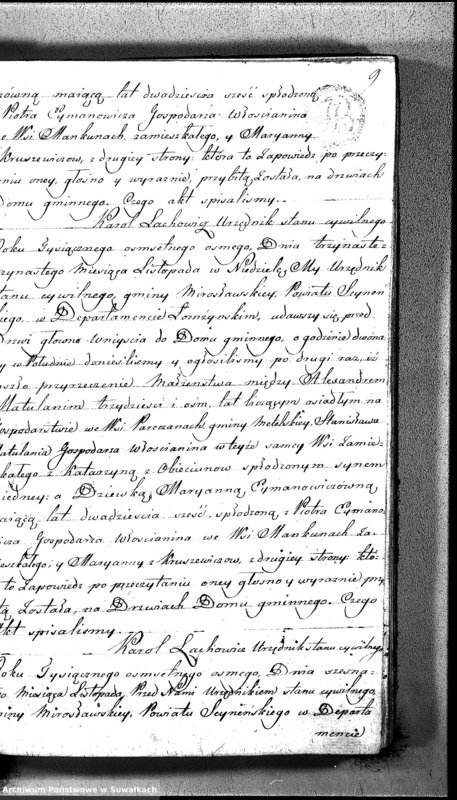 9
równą maiącą lat dwadzieścia sześć spłodzoną
Piotra Cymanowicza Gospodarza Włościanina
we Wsi Mankunach zamieszkałego, y Maryanny
Kruszewiczow, z drugiey strony: która to Zapowiedz po przeczy-
niu oney, głośno y wyraznie, przybitą Została, na drzwiach
Domu gminnego. Czego akt spisalismy.
Karol Lachowicz Urzędnik stanu cywilnego
Roku Tysiącznego osmsetnego osmego, Dnia trzynaste-
rzynastego Miesiąca Listopada w Niedzielę, My Urzędnik
stanu cywilnego, gminy Mirosławskiey Powiatu Seyneń
kiego, w Departamencie Łomżynskim, udawszy się przed
Drzwi głowne wniyścia do Domu gminnego, o godzinie dwóna
y w Południe donieslismy y ogłosilismy po drugi raz, iż
aszło przyrzeczenie Małżeństwa między Alexandrem
Matulanim trzydziesci i osm, lat liczącym osiadłym na
Gospodarstwie we Wsi Poreczanach gminy Metelskiey, Stanisława
Matulania Gospodarza włościanina w teyże samey Wsi Zamiesz
kałego z Katarzyną z Obieciunow spłodzonym synem
iedney: a Dziewką Maryanną Cymanowiczowną
maiącą lat dwadziescia sześć, spłodzoną z Piotra Cymano
wicza Gospodarza Włościanina we Wsi Mankunach Za-
mieszkałego; y Maryanny z Kruszewiczow, z drugiey strony: któ-
to Zapowiedz po przeczytaniu oney głosno y wyraznie przy
tą Została, na Drzwiach Domu gminnego. Czego
Akt spisalismy.
Karol Lachowicz Urzędnik stanu cywilnego
Roku Tysiącznego osmsetnego osmego, Dnia szesna-
go Miesiąca Listopada, Przed Nami Urzędnikiem stanu cywilnego,
miny Mirosławskiey, Powiatu Seyneńskiego w Departa
mencie
Archiwum Państwowe w Suwałkach.